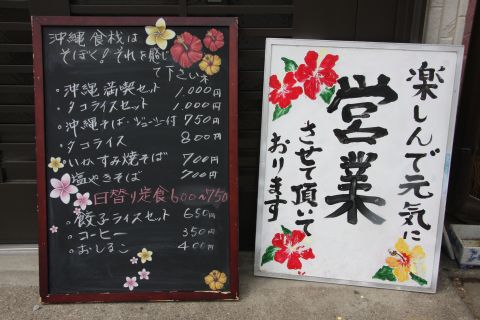 沖縄食桟は
そぼく!それを感じ
て下さい
・沖縄満喫セット 1,000円
・タコライスセット 1,000円
・沖縄そば・ジューシー付 750円
・タコライス 800円
・いかすみ焼そば 700円
・塩やきそば 700円
日替り定食 600~750
・餃子ライスセット 650円
・コーヒー 350円
・おしるこ 400円
楽しんで元気に
営業
させて頂いて
おります